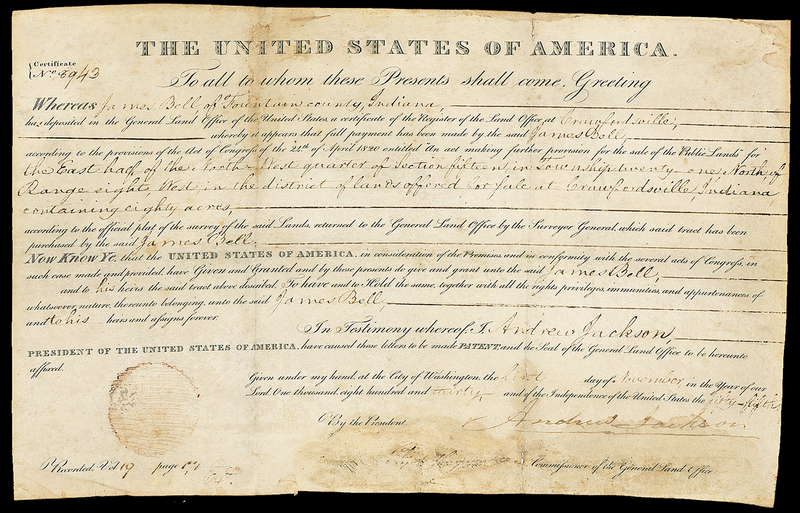 THE UNITED STATES OF AMERICA.
Certificate
No. 8943
To all to whom these Presents shall come, Greeting
Whereas James Bell of Fountain county, Indiana,
has deposited in the General Land Office of the United States, a certificate of the Register of the Land Office, at Crawfordsville,
whereby it appears that full payment has been made by the said James Bell,
according to the provisions of the Act of Congress of the 24th of April 1820 entitled "An act making further provision for the sale of the Public Lands" for
the East half of the North West quarter of Section fifteen, in Township twenty-one, North, of
Range eight, West, in the district of lands offered for sale at Crawfordsville, Indiana
containing eighty acres,
according to the official plat of the survey of the said Lands, returned to the General Land Office by the Surveyor General, which said tract has been
purchased by the said James Bell.
Now Know Ye, that the UNITED STATES OF AMERICA, in consideration of the Premises and in conformity with the several acts of Congress, in
such case made and provided, have Given and Granted and by these presents do give and grant unto the said James Bell,
and to his heirs the said tract above described, To have and to Hold the same, together with all the rights, privileges, immunities, and appurtenances of
whatsoever nature, thereunto belonging, unto the said James Bell,
and to his heirs and assigns forever.
In Testimony whereof, I, Andrew Jackson,
PRESIDENT OF THE UNITED STATES OF AMERICA, have caused these letters to be made PATENT, and the Seal of the General Land Office to be hereunto
affixed.
Given under my hand, at the City of Washington, the day of November, in the Year of our
Lord, One thousand, eight hundred and thirty and of the Independence of the United States the fifty-fifth
By the President Andrew Jackson
Commissioner of the General Land Office
Recorded, Vol 19 page